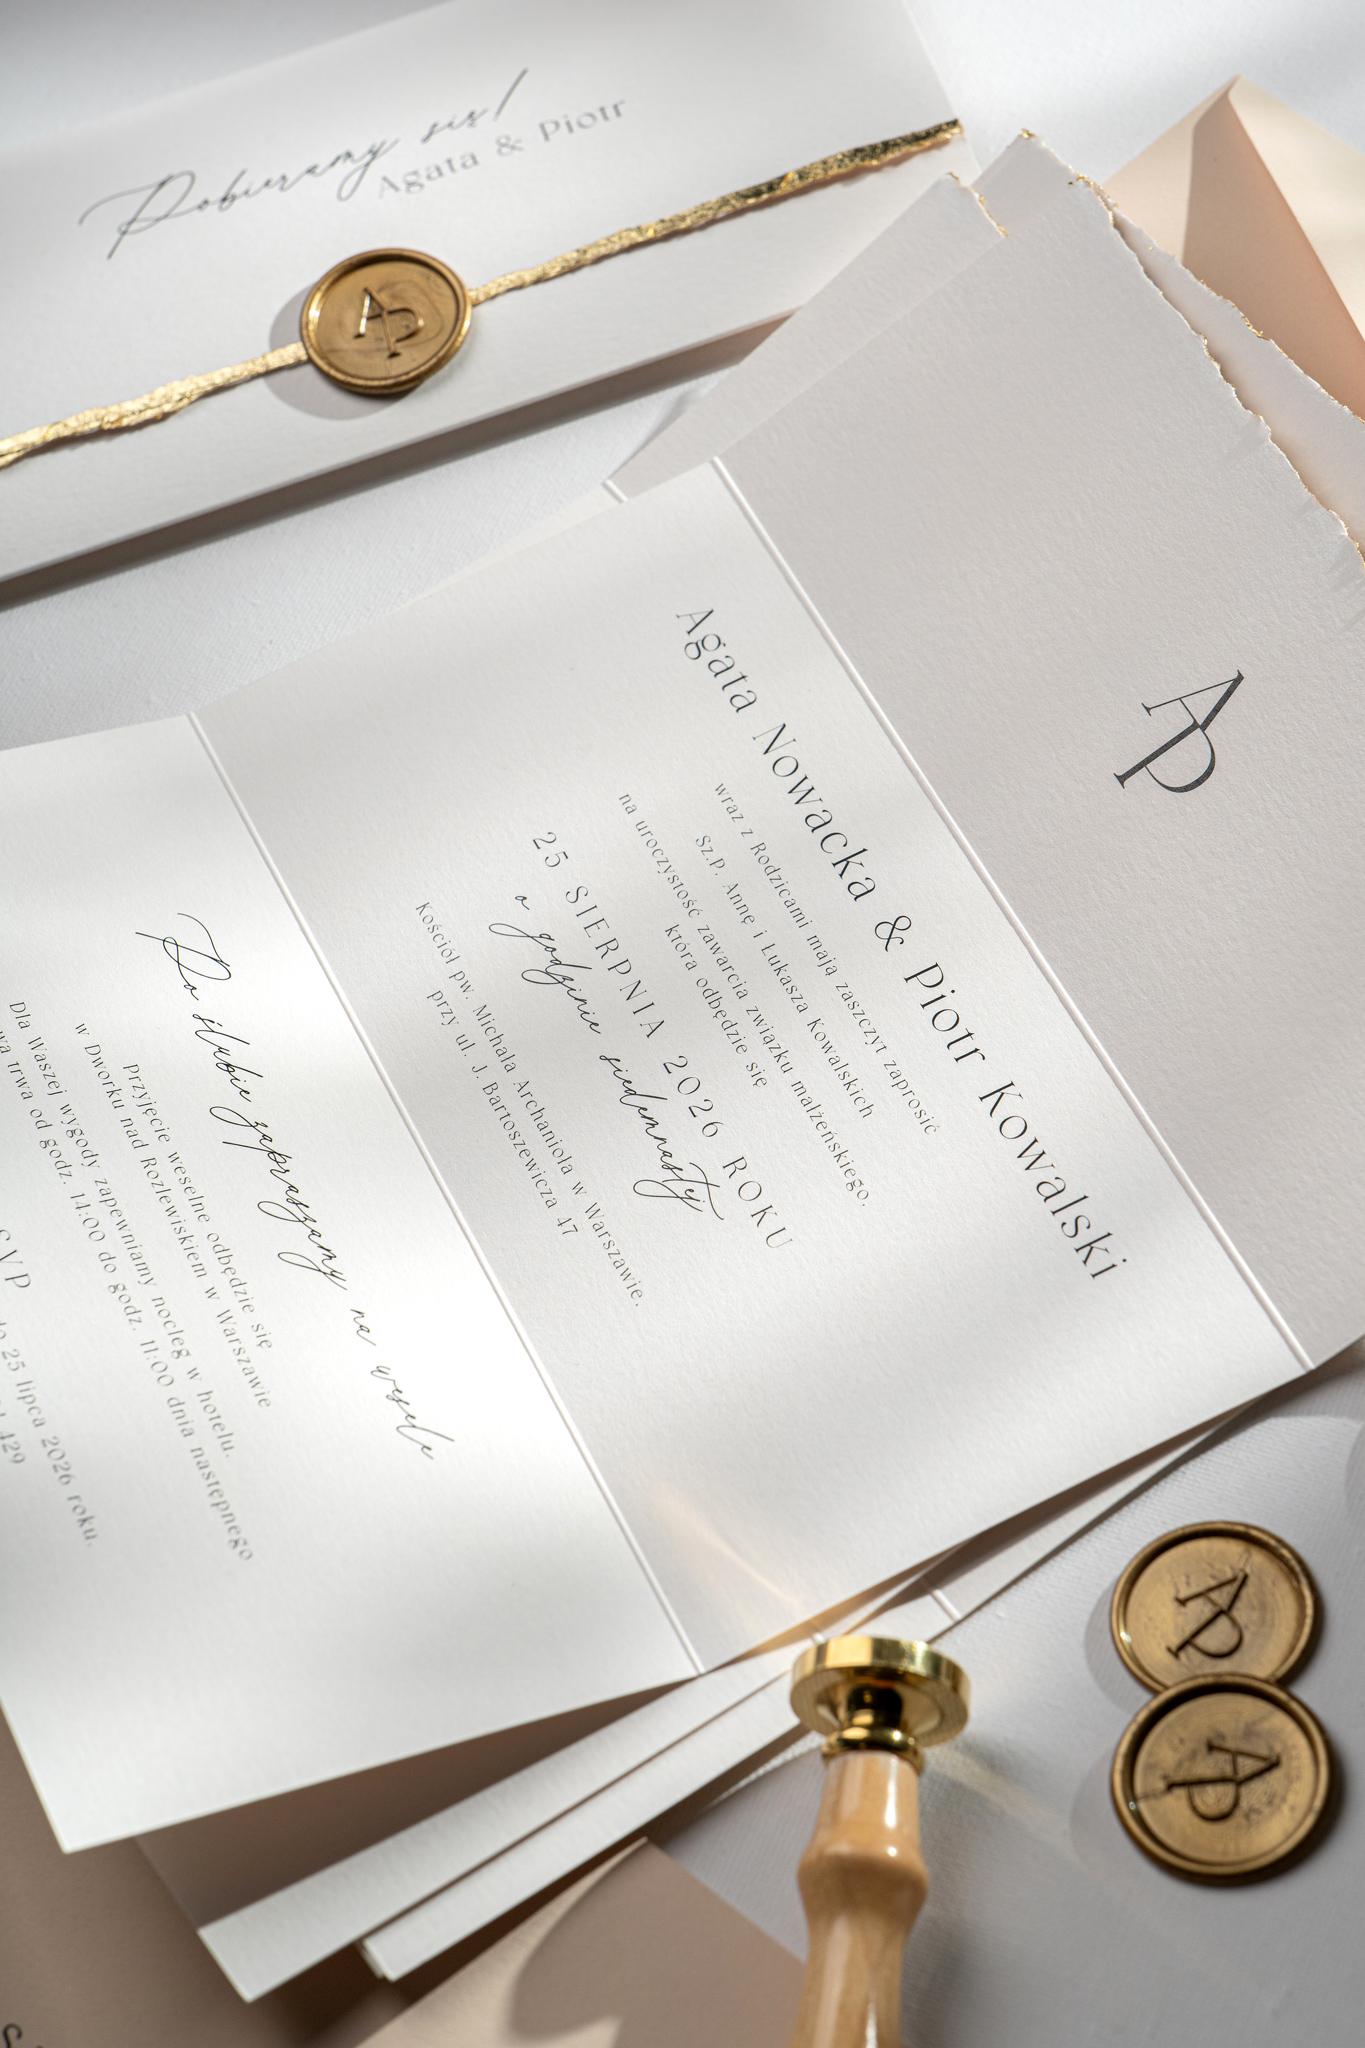 Pobieramy się!
Agata & Piotr
AP
AP
Agata Nowacka & Piotr Kowalski
wraz z Rodzicami mają zaszczyt zaprosić
Sz.P. Annę i Łukasza Kowalskich
na uroczystość zawarcia związku małżeńskiego,
która odbędzie się
25 SIERPNIA 2026 ROKU
o godzinie siedemnastej
Kościół pw. Michała Archanioła w Warszawie,
przy ul. J. Bartoszewicza 47
Po ślubie zapraszamy na wesele
Przyjęcie weselne odbędzie się
w Dworku nad Rozlewiskiem w Warszawie
Dla Waszej wygody zapewniamy nocleg w hotelu.
trwa od godz. 14:00 do godz. 11:00 dnia następnego
VP
25 lipca 2026 roku.
429
AP
AP